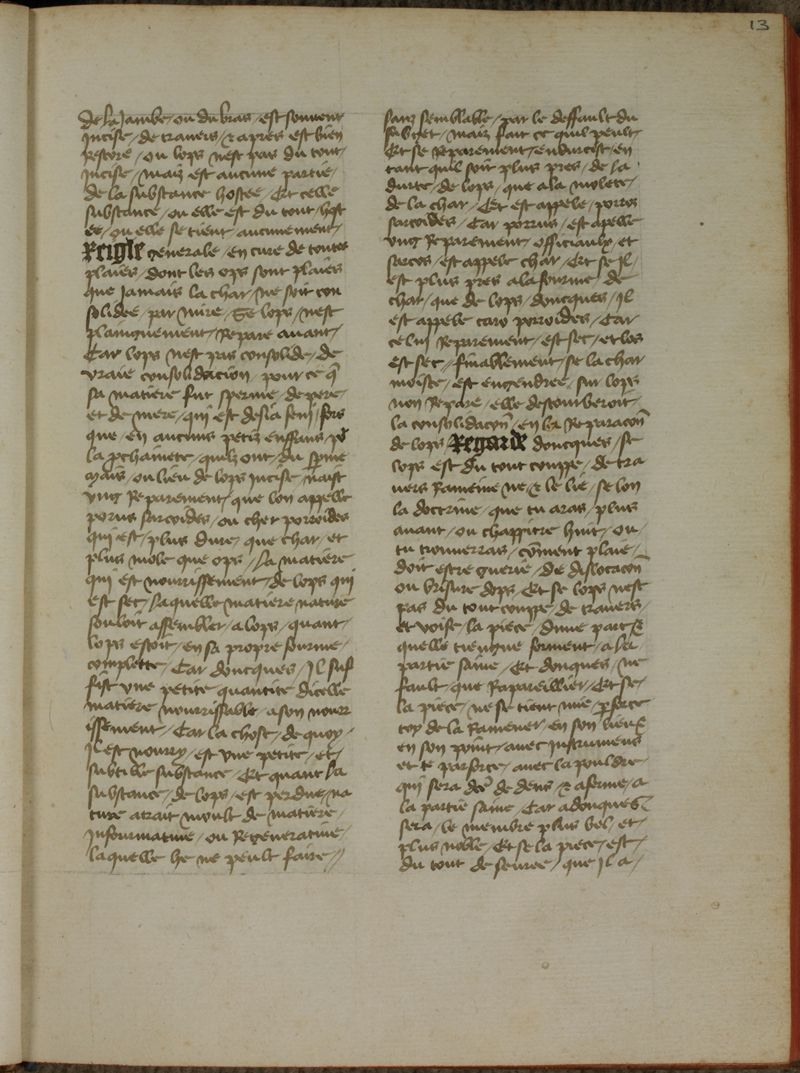 13
De La Jambe / ou du bras / est souuent
Incise / de trauers / & apres est bien
Restore / ou lops nest pas du tout /
Incise / maiz est aucune partie /
de la substance hostee / Et celle
substance / ou elle est du tout / host
ee / ou elle se tient / aucunement /
Reigle generale / en cure de toutes
plaies / dont les ops sont plaies
que Jamais la char / ne soit con
solidee / par mire / Se lops / nest
plainquement / Repare auant /
Car lops / nest pas consolide / de
vraie consolidacion / pour ce q̄
sa matiere fut sperme / de pere /
et de mere / qui est desia
que / en aucuns petiz enffans /
la quilz ont / du
mais / ou lieu de lops Incise / naist
vng Reparement / que lon appelle
porus sarcoides / ou cher porroides
qui est / plus dure / que char / et
plus mole que ops / La matiere
qui est nourrissement / de lops qui
est sec / laquelle matiere nature
souloit assembler / a lops / quant /
lops estoit / en sa propre fourme /
complette / Car doncques / Il suf
fist vne petite quantite dicelle
matiere nourrissable / a son nourr
issement / Car la chose / de quoy /
Il est nourry / est vne petite / et /
subtille substance / Et quant La
substance / de lops / est perdue / na
ture atrait moult de matiere /
Informatiue / ou Regeneratiue /
laquelle he ne peult faire //
sanz semblable / par le deffault du
subget / maiz fait ce quil peult /
Et se Reparement / endurcist / en
tant quil soit plus pres / de la
durte / de lops / que a la molete /
de la char / Et est appele / porros
sarcoides / Car porrus / est apelle
vng Reparement / officiaulx / et
sarcos / est appele char / Et se Il /
est plus pres a la fourme / de
char / que de lops / doncques / Il
est appele caro porroides / Car
celui Reparement / est sec / et los
est sec / finablement / se la char
moiste / est engendree / sur lops
non Repare / elle destourberoit /
la consolidacon / en la Reparacon
de lops Regarde doncques / se
lops est du tout couppe / de tra
uers Rameine ne / & le lie / se lon
la doctrine / que tu aras / plus
auant / ou chappitre huit / ou /
tu trouuerras / cōment plaie /
doit estre guerie / de dislocacon
ou brisure dops / Et se lops nest
pas du tout couppe / de trauers /
et voise / la piece / dune part &
quelle tiengne forment / a la /
partie saine / Et donques / ne
fault / que Rapareillier / Et se /
la piece / ne se tient mie / parforce
toy de la Ramener / en son lieu &
en son point / auec Instrumens
et te parforce / auec la pouldre /
qui sera dce de dens / & aferme / a
la partie saine / Car adonques
sera / le membre plus bel / et /
plus noble / Et se la piece / est /
du tout de seuree / que Il a /